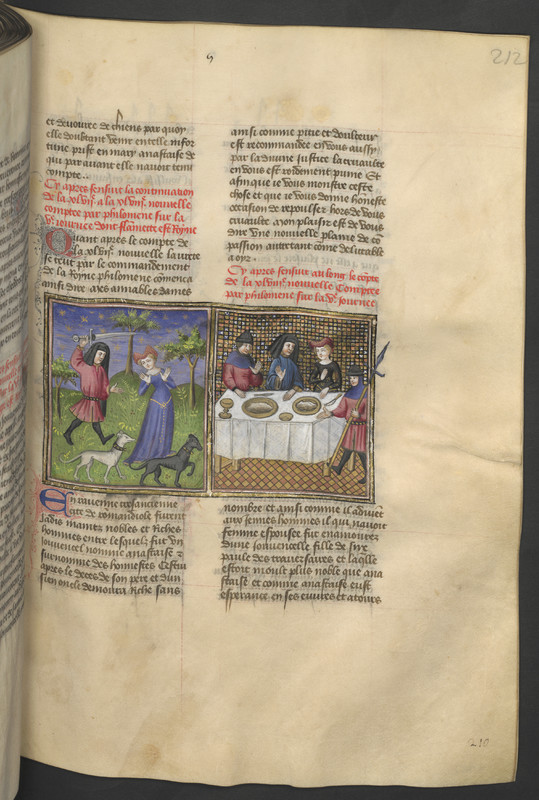 212
et devouree de chiens par quoy
elle doubtant venir en telle infor
tune prist en mary anastaise de
qui par avant elle navoit tenu
compte
Cy apres sensuit la continuation
nouvelle
comptee par philomene sur la
journee dont flamette est Royne
Quant apres le compte de
nouvelle laurette
se teut par le commandement
de la Royne philomene comenca
ainsi dire mes amiables dames
ainsi comme pitie et doulceur
est recommandee en vous aussy
par la divine justice la cruaulte
en vous est roidement punie Et
afin que je vous monstre ceste
chose et que je vous donne honeste
occasion de repoulser hors de vous
cruaulte mon plaisir est de vous
dire une nouvelle plaine de co
passion autretant come delitable
a oyr
Cy apres sensuit au long le copte
de la nouvelle Comptee
par philomene sur la journee
En ravenne tresancienne
cite de romandiole furent
jadis maintz nobles et Riches
hommes entre lesquelz fut un
jouvencel nomme anastaise
surnomme des honnestes Cestui
apres le deces de son pere et dun
sien oncle demoura riche sans
nombre et ainsi comme il advient
aux jeunes hommes il qui navoit
femme espousee fut enamoure
dune jouvencelle fille de
paule des traversaires et laqlle
estoit moult plus noble que ana
staise et comme anastaise eust
esperance en ses euvres et atours
210